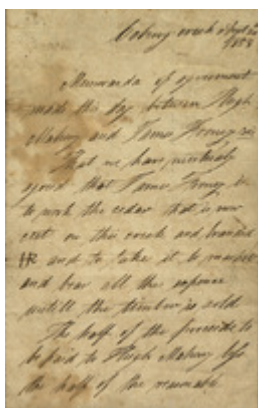 Mulvey creek Sept
1883
Memoranda of agreement
made this day between Hugh
Mabony and James Toomey viz
That we have mutually
agreed that James Toomey is
to work the cedar that is now
cut on this creek and branded
HR and to take it to market
and bear all the expence
untill the timber is sold
The half of the proceeds to
be paid to Hugh Mabony less
the half of the reasonable